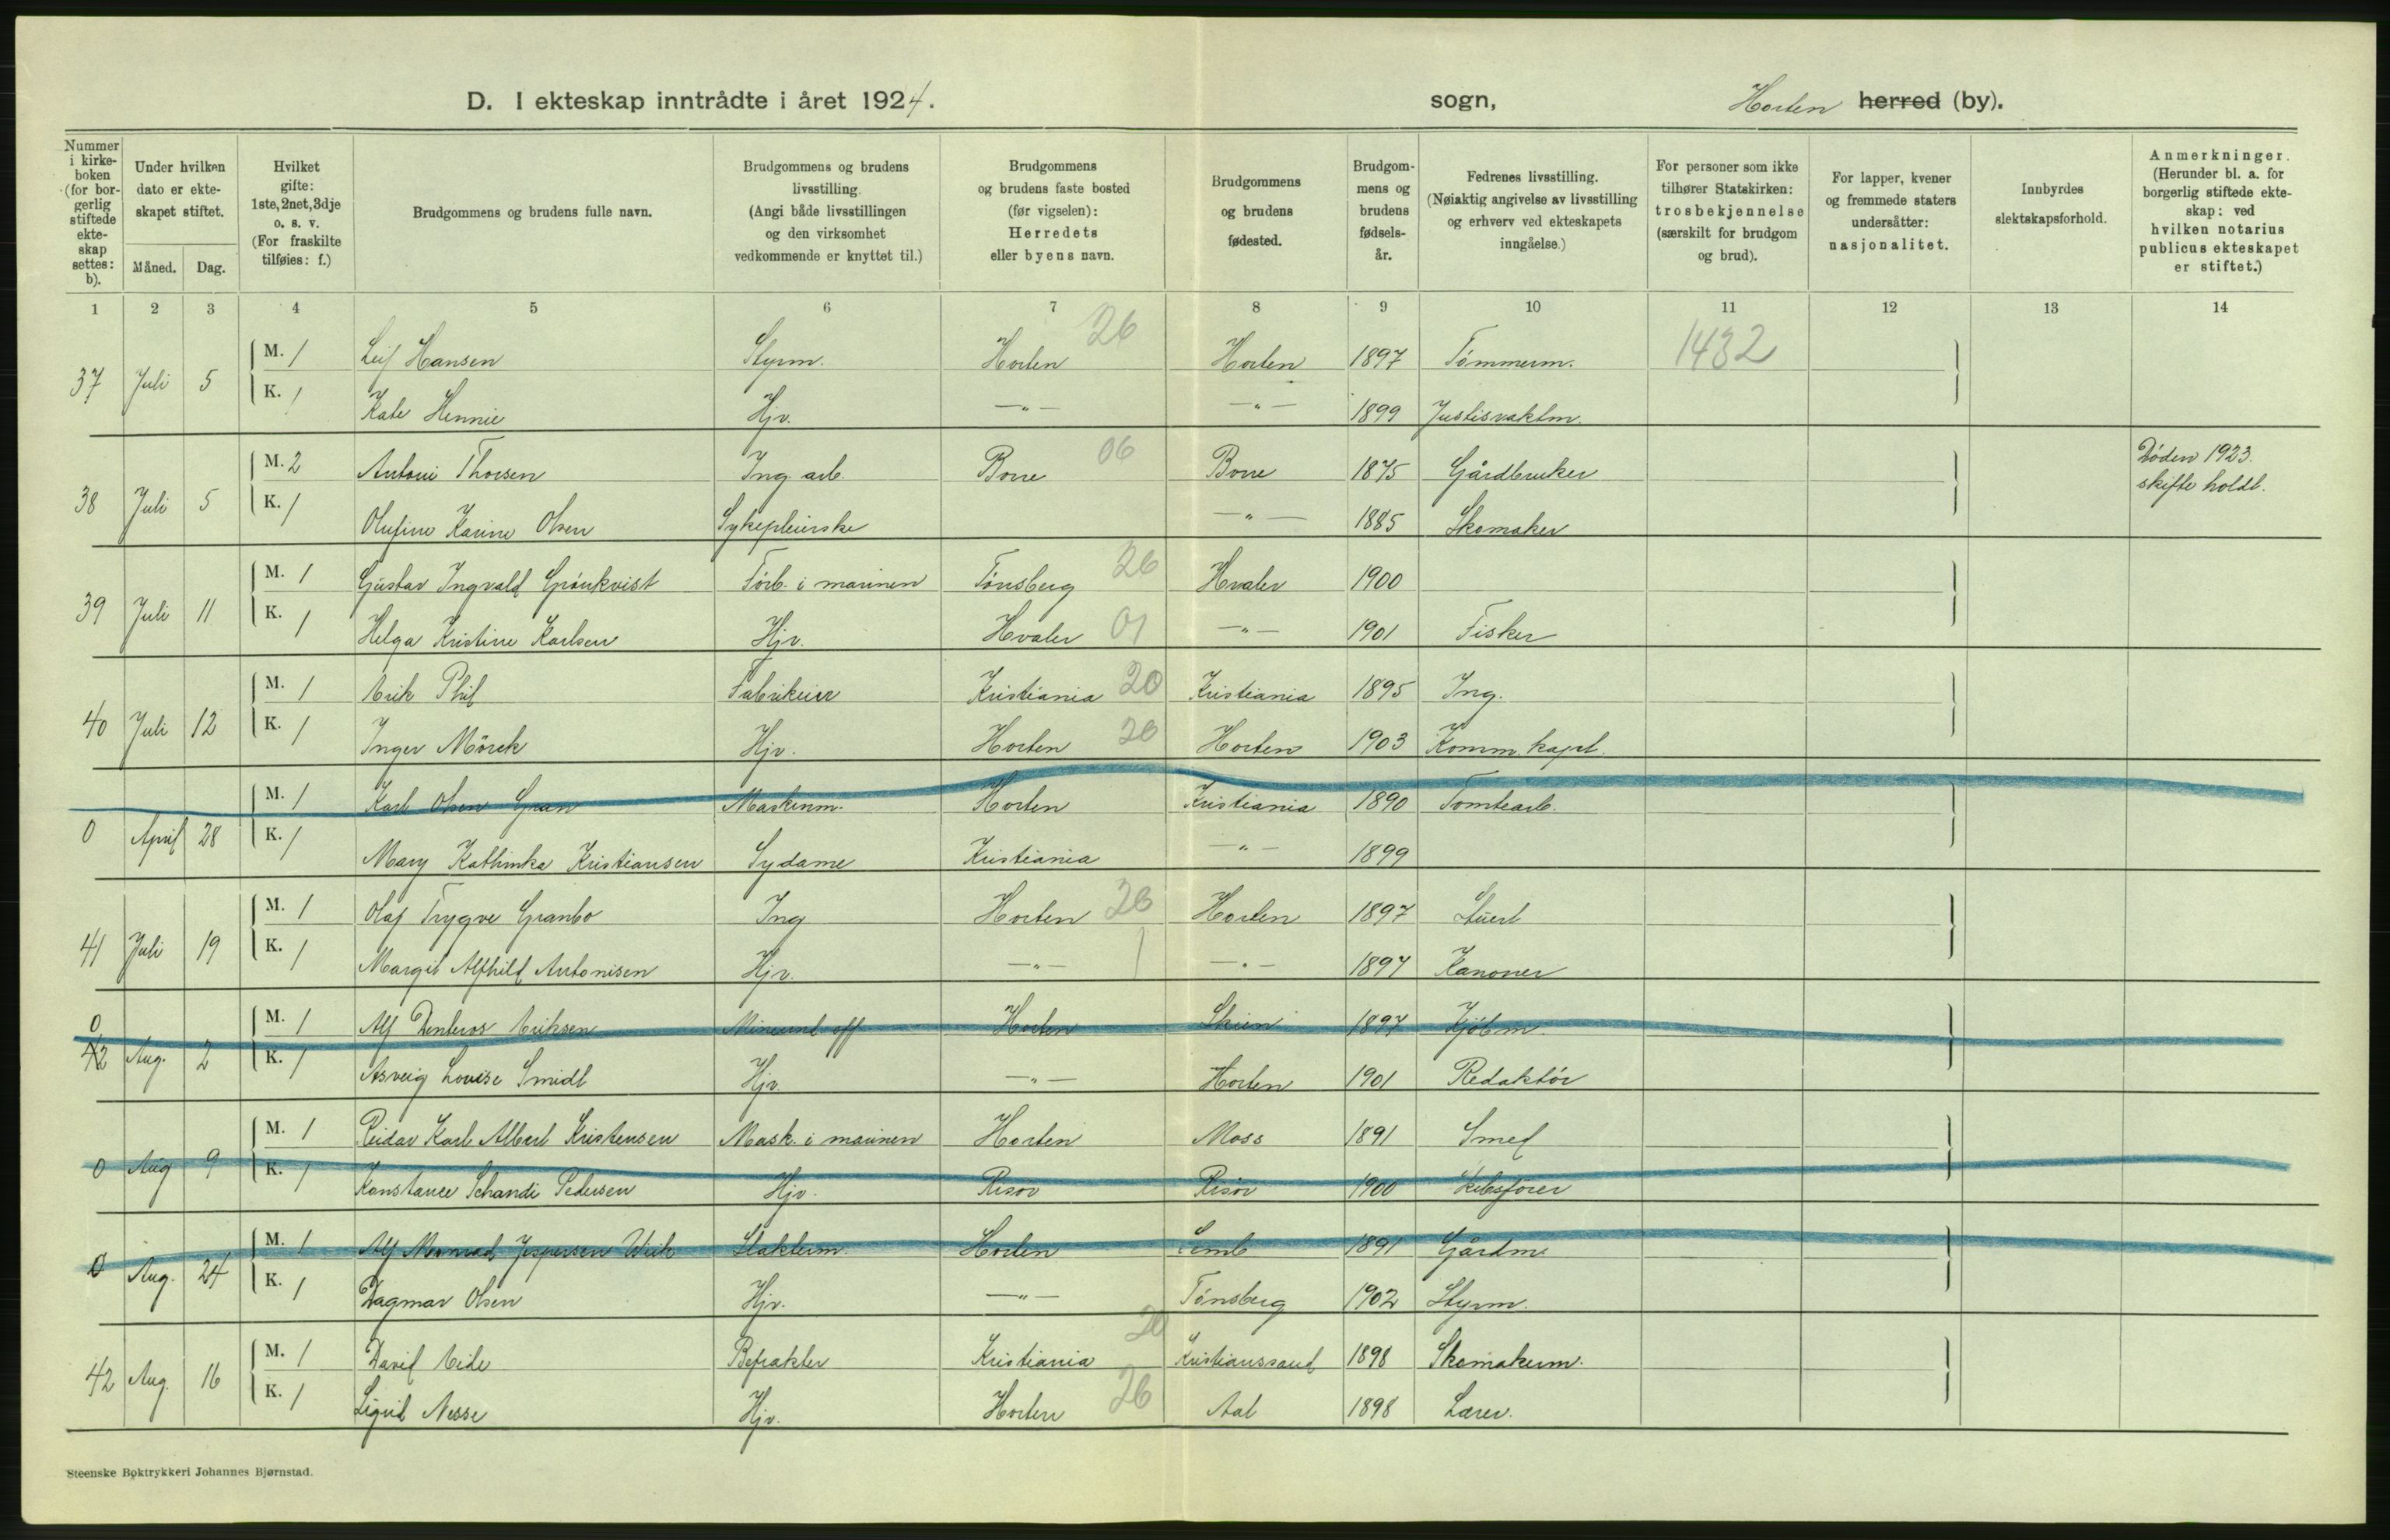 D. I ekteskap inntrådte i året 1924. sogn, Horten herred (by).
Nummer i kirkeboken (for borgerlig stiftede ekteskap settes: b).
Under hvilken dato er ekteskapet stiftet.
Måned. Dag.
Hvilket gifte: 1ste, 2net, 3dje o. s. v. (For fraskilte tilføies: f.)
Brudgommens og brudens fulle navn.
Brudgommens og brudens livsstilling. (Angi både livsstillingen og den virksomhet vedkommende er knyttet til.)
Brudgommens og brudens faste bosted (før vigselen): Herredets eller byens navn.
Brudgommens og brudens fødested.
Brudgommens og brudens fødselsår.
Fedrenes livsstilling. (Nøiaktig angivelse av livsstilling og erhverv ved ekteskapets inngåelse.)
For personer som ikke tilhører Statskirken: trosbekjennelse (særskilt for brudgom og brud).
For lapper, kvener og fremmede staters undersåtter: nasjonalitet.
Innbyrdes slektskapsforhold.
Anmerkninger. (Herunder bl. a. for borgerlig stiftede ekteskap: ved hvilken notarius publicus ekteskapet er stiftet.)
1 2 3 4 5 6 7 8 9 10 11 12 13 14
37 Juli 5 M. 1 Leif Hansen Styrm. Horten 26 Horten 1897 Tömmerm. 1432
K. 1 Kate Hennie Hjv. —"— —"— 1899 Justisvaktm.
38 Juli 5 M. 2 Antoni Thorsen Ing. arb. Borre 06 Borre 1875 Gårdbruker Döden 1923. skifte holdt.
K. 1 Olufine Karine Olsen Sykepleierske —"— 1885 Skomaker
39 Juli 11 M. 1 Gustav Ingvald Grönkvist Törb. i marinen Tönsberg 26 Hvaler 1900
K. 1 Helga Kristine Karlsen Hjv. Hvaler 01 —"— 1901 Fisker
40 Juli 12 M. 1 Erik Phil Fabrikeier Kristiania 20 Kristiania 1895 Ing.
K. 1 Inger Mörck Hjv. Horten 26 Horten 1903 Komm. kapt.
0 April 28 M. 1 Karl Olsen Gran Maskinm. Horten Kristiania 1890 Tomtearb.
K. 1 Mary Kathinka Kristiansen Sydame Kristiania —"— 1899
41 Juli 19 M. 1 Olaf Trygve Granbo Ing Horten 26 Horten 1897 Stuert
K. 1 Margit Alfhild Antonisen Hjv. —"— —"— 1897 Kanoner
0 42 Aug. 2 M. 1 Alf Eriksen off Horten Skien 1897 Kjöbm.
K. 1 Asveig Lovise Smidt Hjv. —"— Horten 1901 Redaktör
0 Aug 9 M. 1 Reidar Karl Albert Kristensen Mask. i marinen Horten Moss 1891 Smed
K. 1 Konstance Schandi Pedersen Hjv. Risör Risör 1900 Skibsförer
0 Aug. 24 M. 1 Alf Jespersen Wiik Slakterm. Horten Semb 1891 Gårdm.
K. 1 Dagmar Olsen Hjv. —"— Tönsberg 1902 Styrm.
42 Aug. 16 M. 1 David Eide Befrakter Kristiania 20 Kristianssand 1898 Skomakerm.
K. 1 Sigrid Nesse Hjv. Horten 26 Aal 1898 Lærer.
Steenske Boktrykkeri Johannes Bjørnstad.